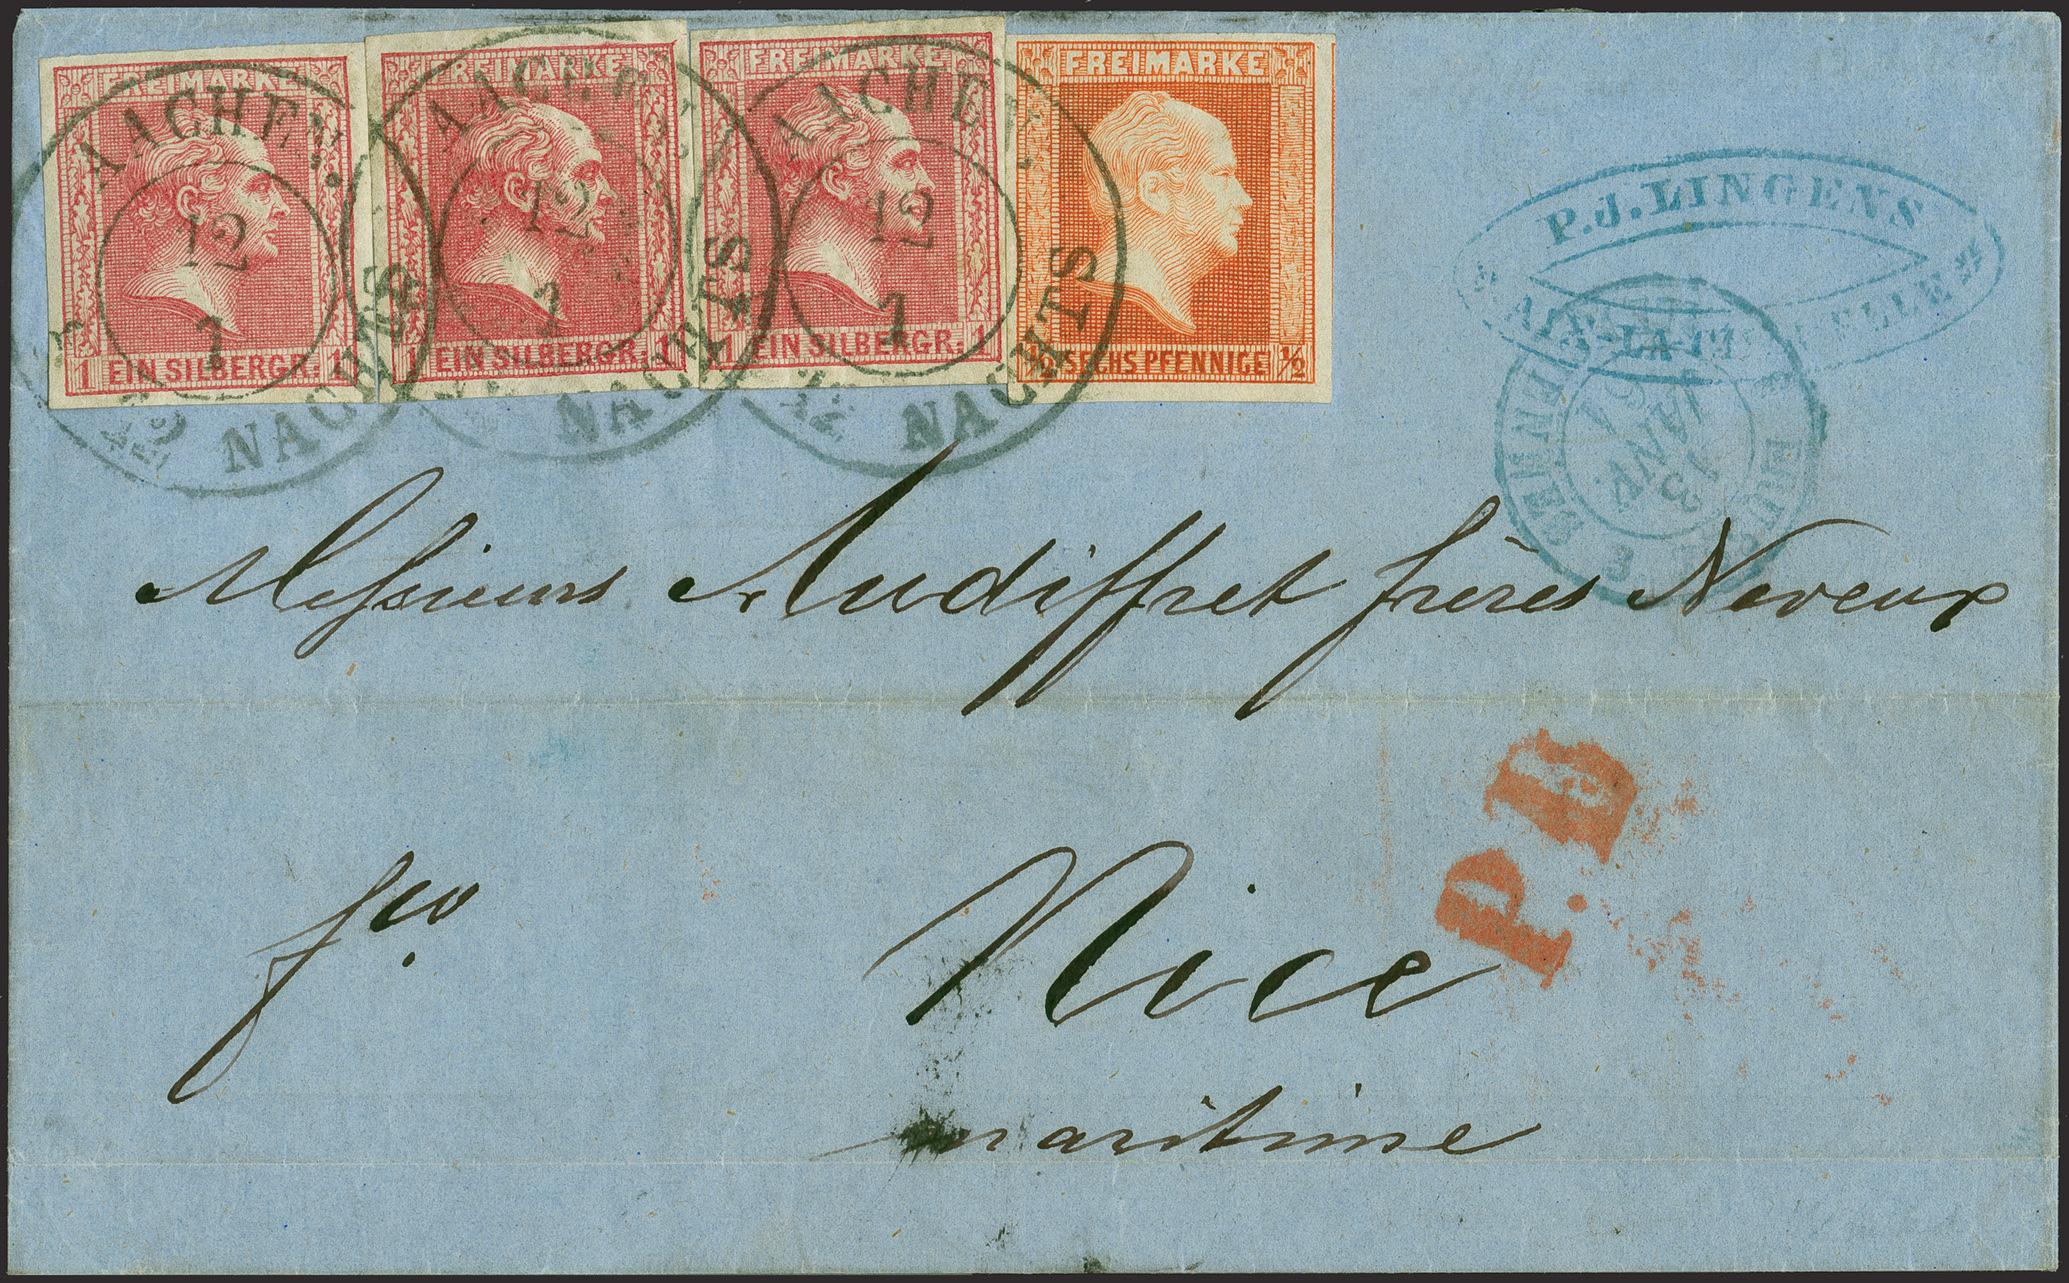 FREIMARKE
1 EIN SILBERGR. 1
AACHEN.
12
1
NACHTS
FREIMARKE
1 EIN SILBERGR. 1
AACHEN
12
1
NACHTS
FREIMARKE
1 EIN SILBERGR. 1
AACHEN.
12
1
NACHTS
FREIMARKE
½ SECHS PFENNIGE ½
P.J. LINGENS
AIX-LA-CHAPELLE
13
JANV.
61
Messieurs Audiffret frères Neveux
fco
Nice
maritime
P.D